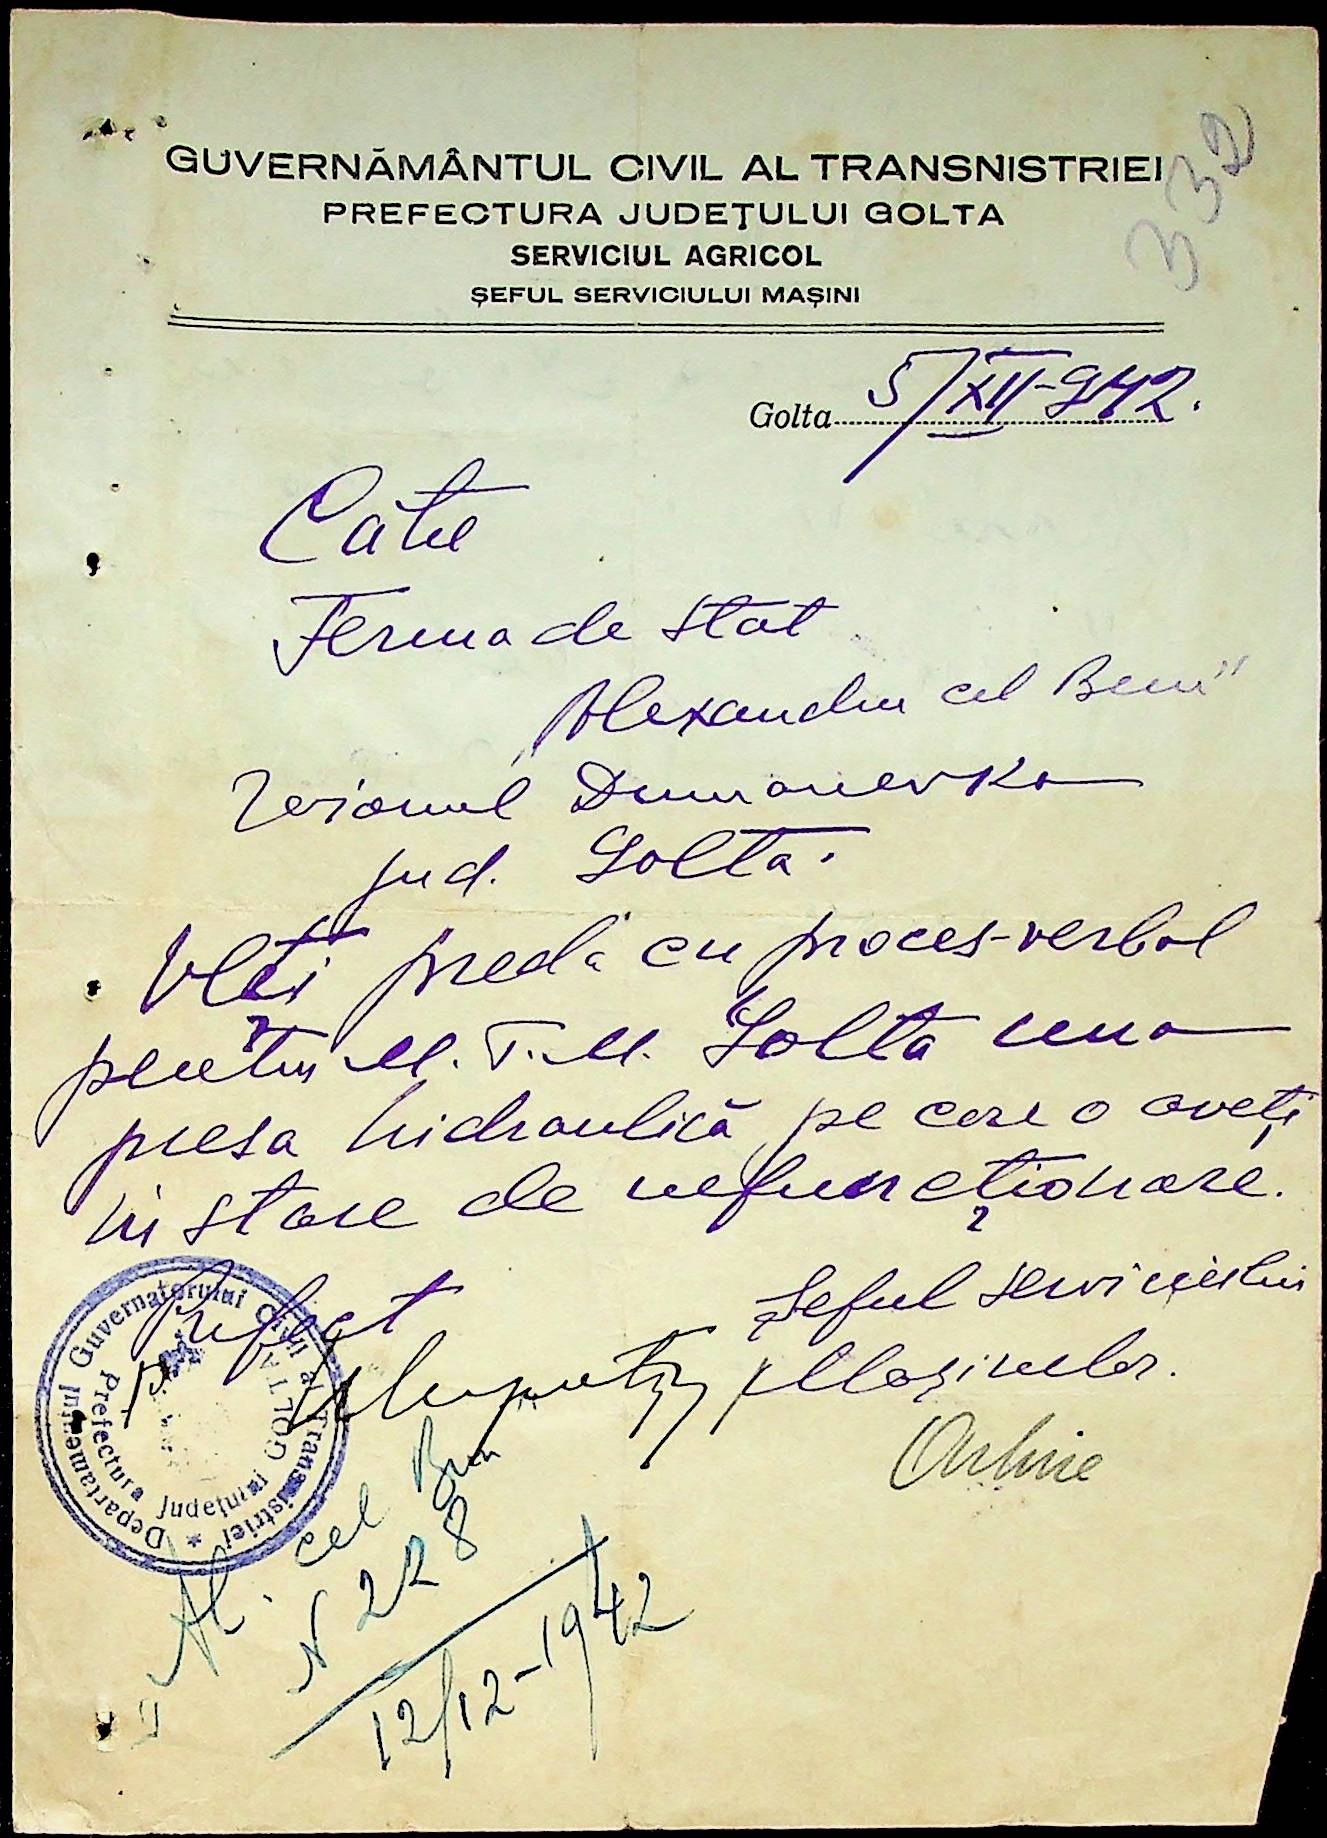 332
GUVERNĂMÂNTUL CIVIL AL TRANSNISTRIEI
PREFECTURA JUDEŢULUI GOLTA
SERVICIUL AGRICOL
ŞEFUL SERVICIULUI MAŞINI
Golta 5/XII-942.
Către
Ferma de Stat
„Alexandru cel Bun"
raionul Dumanevka
jud. Golta.
Veţi preda cu proces-verbal
pentru M.T.M. Golta una
presa hidraulică pe care o aveţi
in stare de nefuncţionare.
Prefect
Şeful serviciului
Maşinelor.
Departamentul Guvernatorului Civil al Transnistriei
Prefectura Judeţului GOLTA
„Al. cel Bun"
N 228
12/12-1942